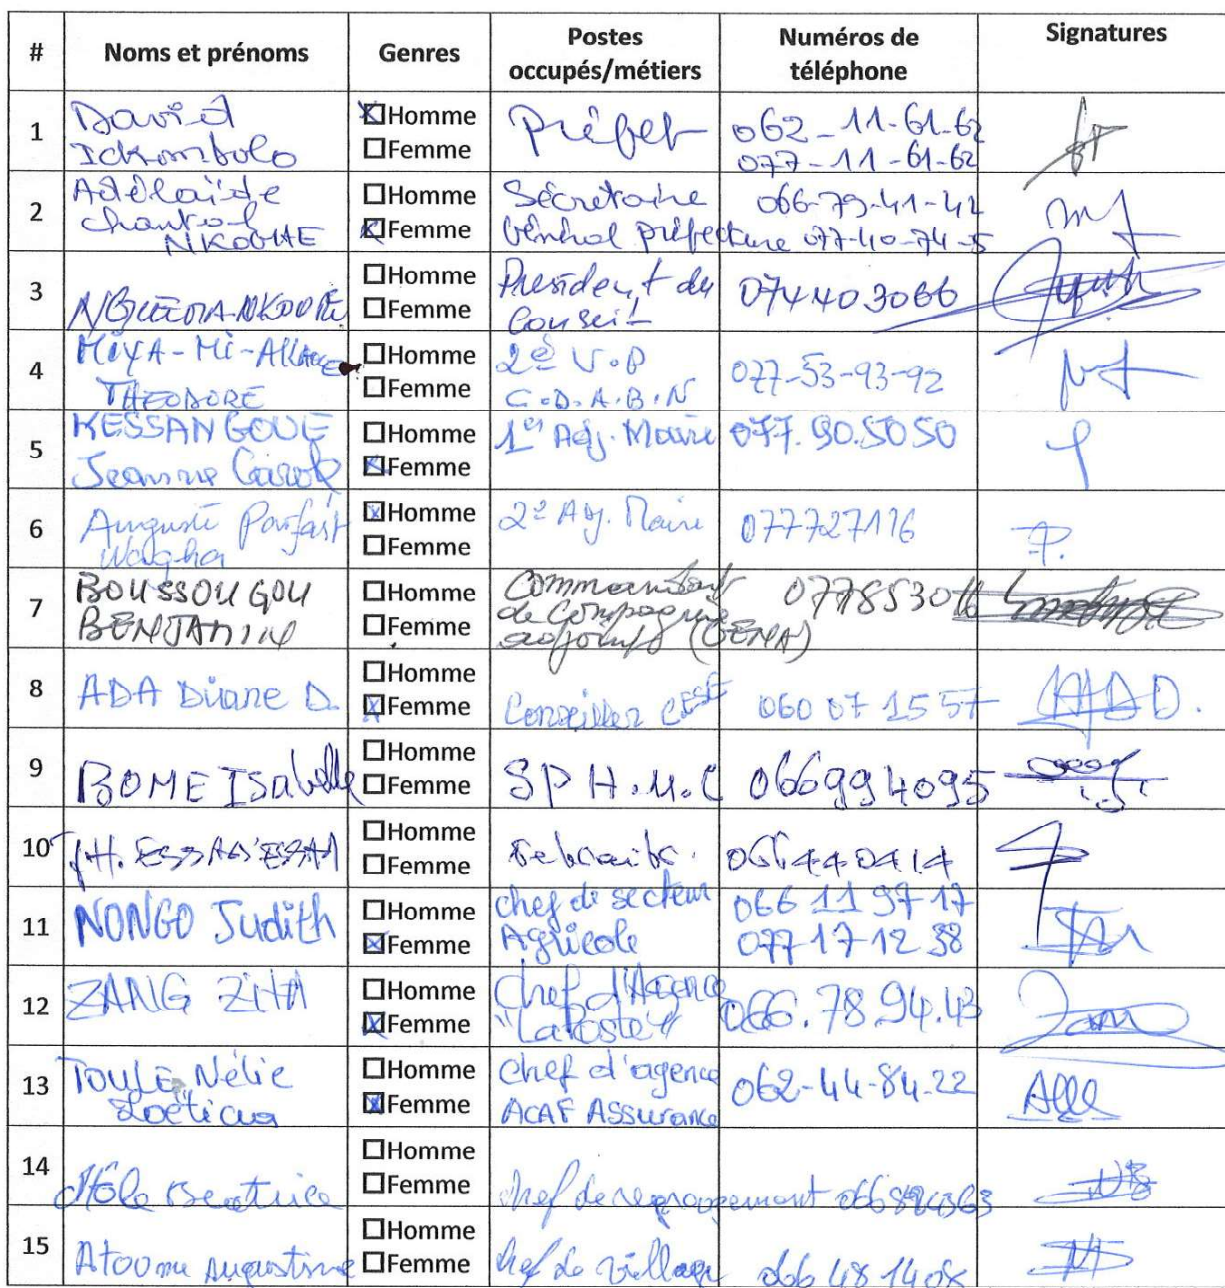 # Noms et prénoms Genres Postes occupés/métiers Numéros de téléphone Signatures
1 David Ickombolo ☒Homme ☐Femme Préfet 062-11-61-62 077-11-61-62
2 Adélaïde Chantal NKOGHE ☐Homme ☒Femme Sécretaire Général préfecture 066-79-41-42 077-40-74-5
3 NGUEMA-NKOGHE ☐Homme ☐Femme President du Conseil 074403066
4 MIYA-Mi- THEODORE ☐Homme ☐Femme 2è V.P C.D.A.B.N 077-53-93-92
5 KESSANGOUE Jeanne Carole ☐Homme ☒Femme 1er Adj. Maire 077.90.5050
6 Auguste Parfait Wagha ☒Homme ☐Femme 2è Adj. Maire 077727116
7 BOUSSOUGOU BENJAMIN ☐Homme ☐Femme Commandant de Compagnie adjoint 07785301
8 ADA Diane D. ☐Homme ☒Femme Conseiller CESE 060 07 15 57
9 BOME Isabelle ☐Homme ☐Femme SP H.M.C 066994095
10 ☐Homme ☐Femme 066440414
11 NONGO Judith ☐Homme ☒Femme chef de secteur Agricole 066 11 97 17 077 17 12 38
12 ZANG ZITA ☐Homme ☒Femme Chef d'Agence "LaPoste" 066.78.94.43
13 TOULE Nélie Loëticia ☐Homme ☒Femme chef d'agence ACAF ASSurance 062-44-84-22
14 Beatrice ☐Homme ☐Femme chef de regroupement
15 Augustine ☐Homme ☐Femme chef de village 066 48 14 08